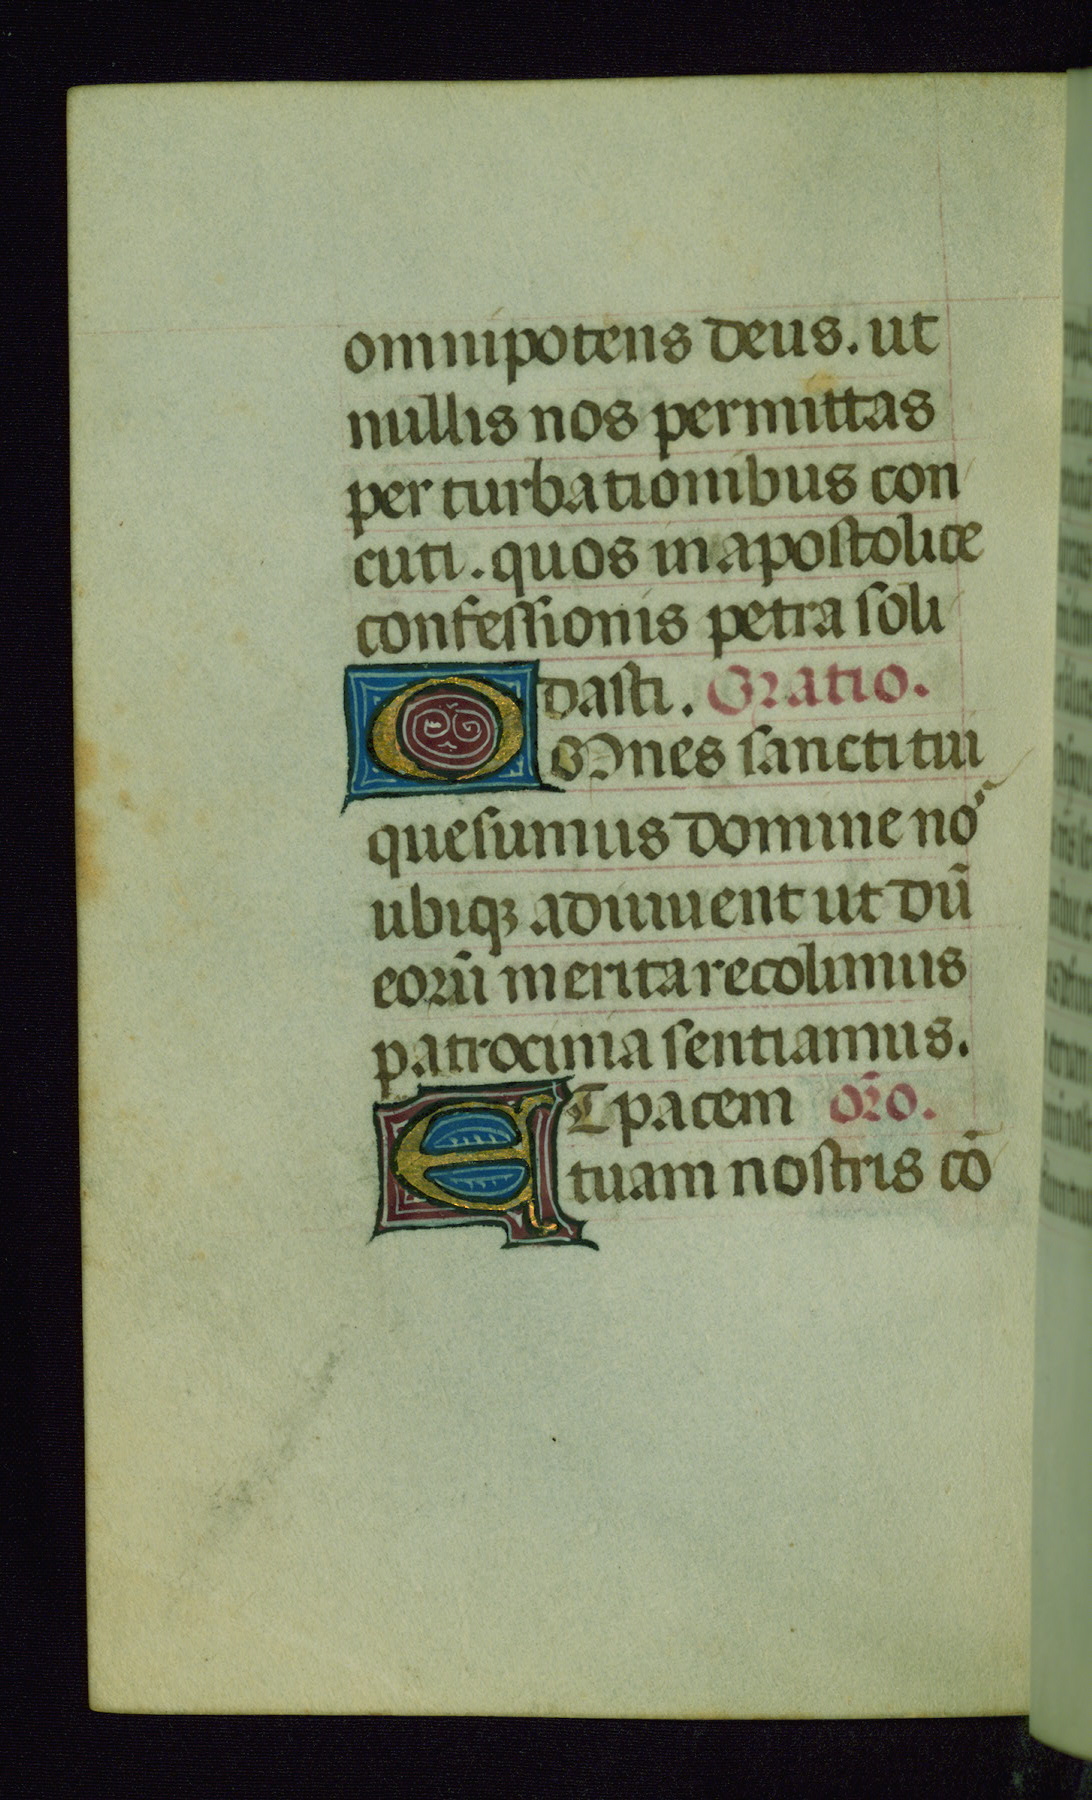 omnipotens deus. ut
nullis nos permittas
perturbationibus con
cuti. quos in apostolice
confessionis petra soli
dasti. Oratio.
OMnes sancti tui
quesumus domine no᷒
ubiqꝫ adiuuent ut dū
eorū merita recolimus
patrocinia sentiamus.
ET pacem or̄o.
tuam nostris cō